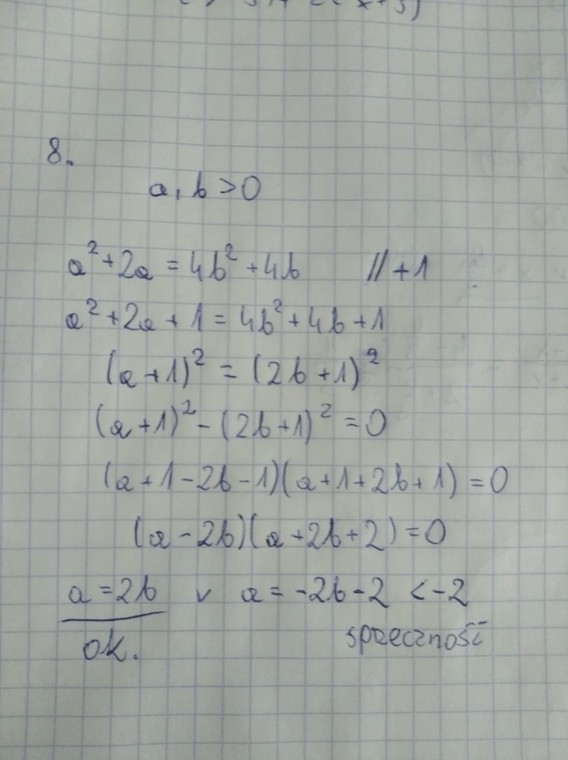 8.
a, b > 0
a² + 2a = 4b² + 4b // +1
a² + 2a + 1 = 4b² + 4b + 1
(a + 1)² = (2b + 1)²
(a + 1)² - (2b + 1)² = 0
(a + 1 - 2b - 1)(a + 1 + 2b + 1) = 0
(a - 2b)(a + 2b + 2) = 0
a = 2b v a = -2b - 2 < -2
ok. sprzeczność